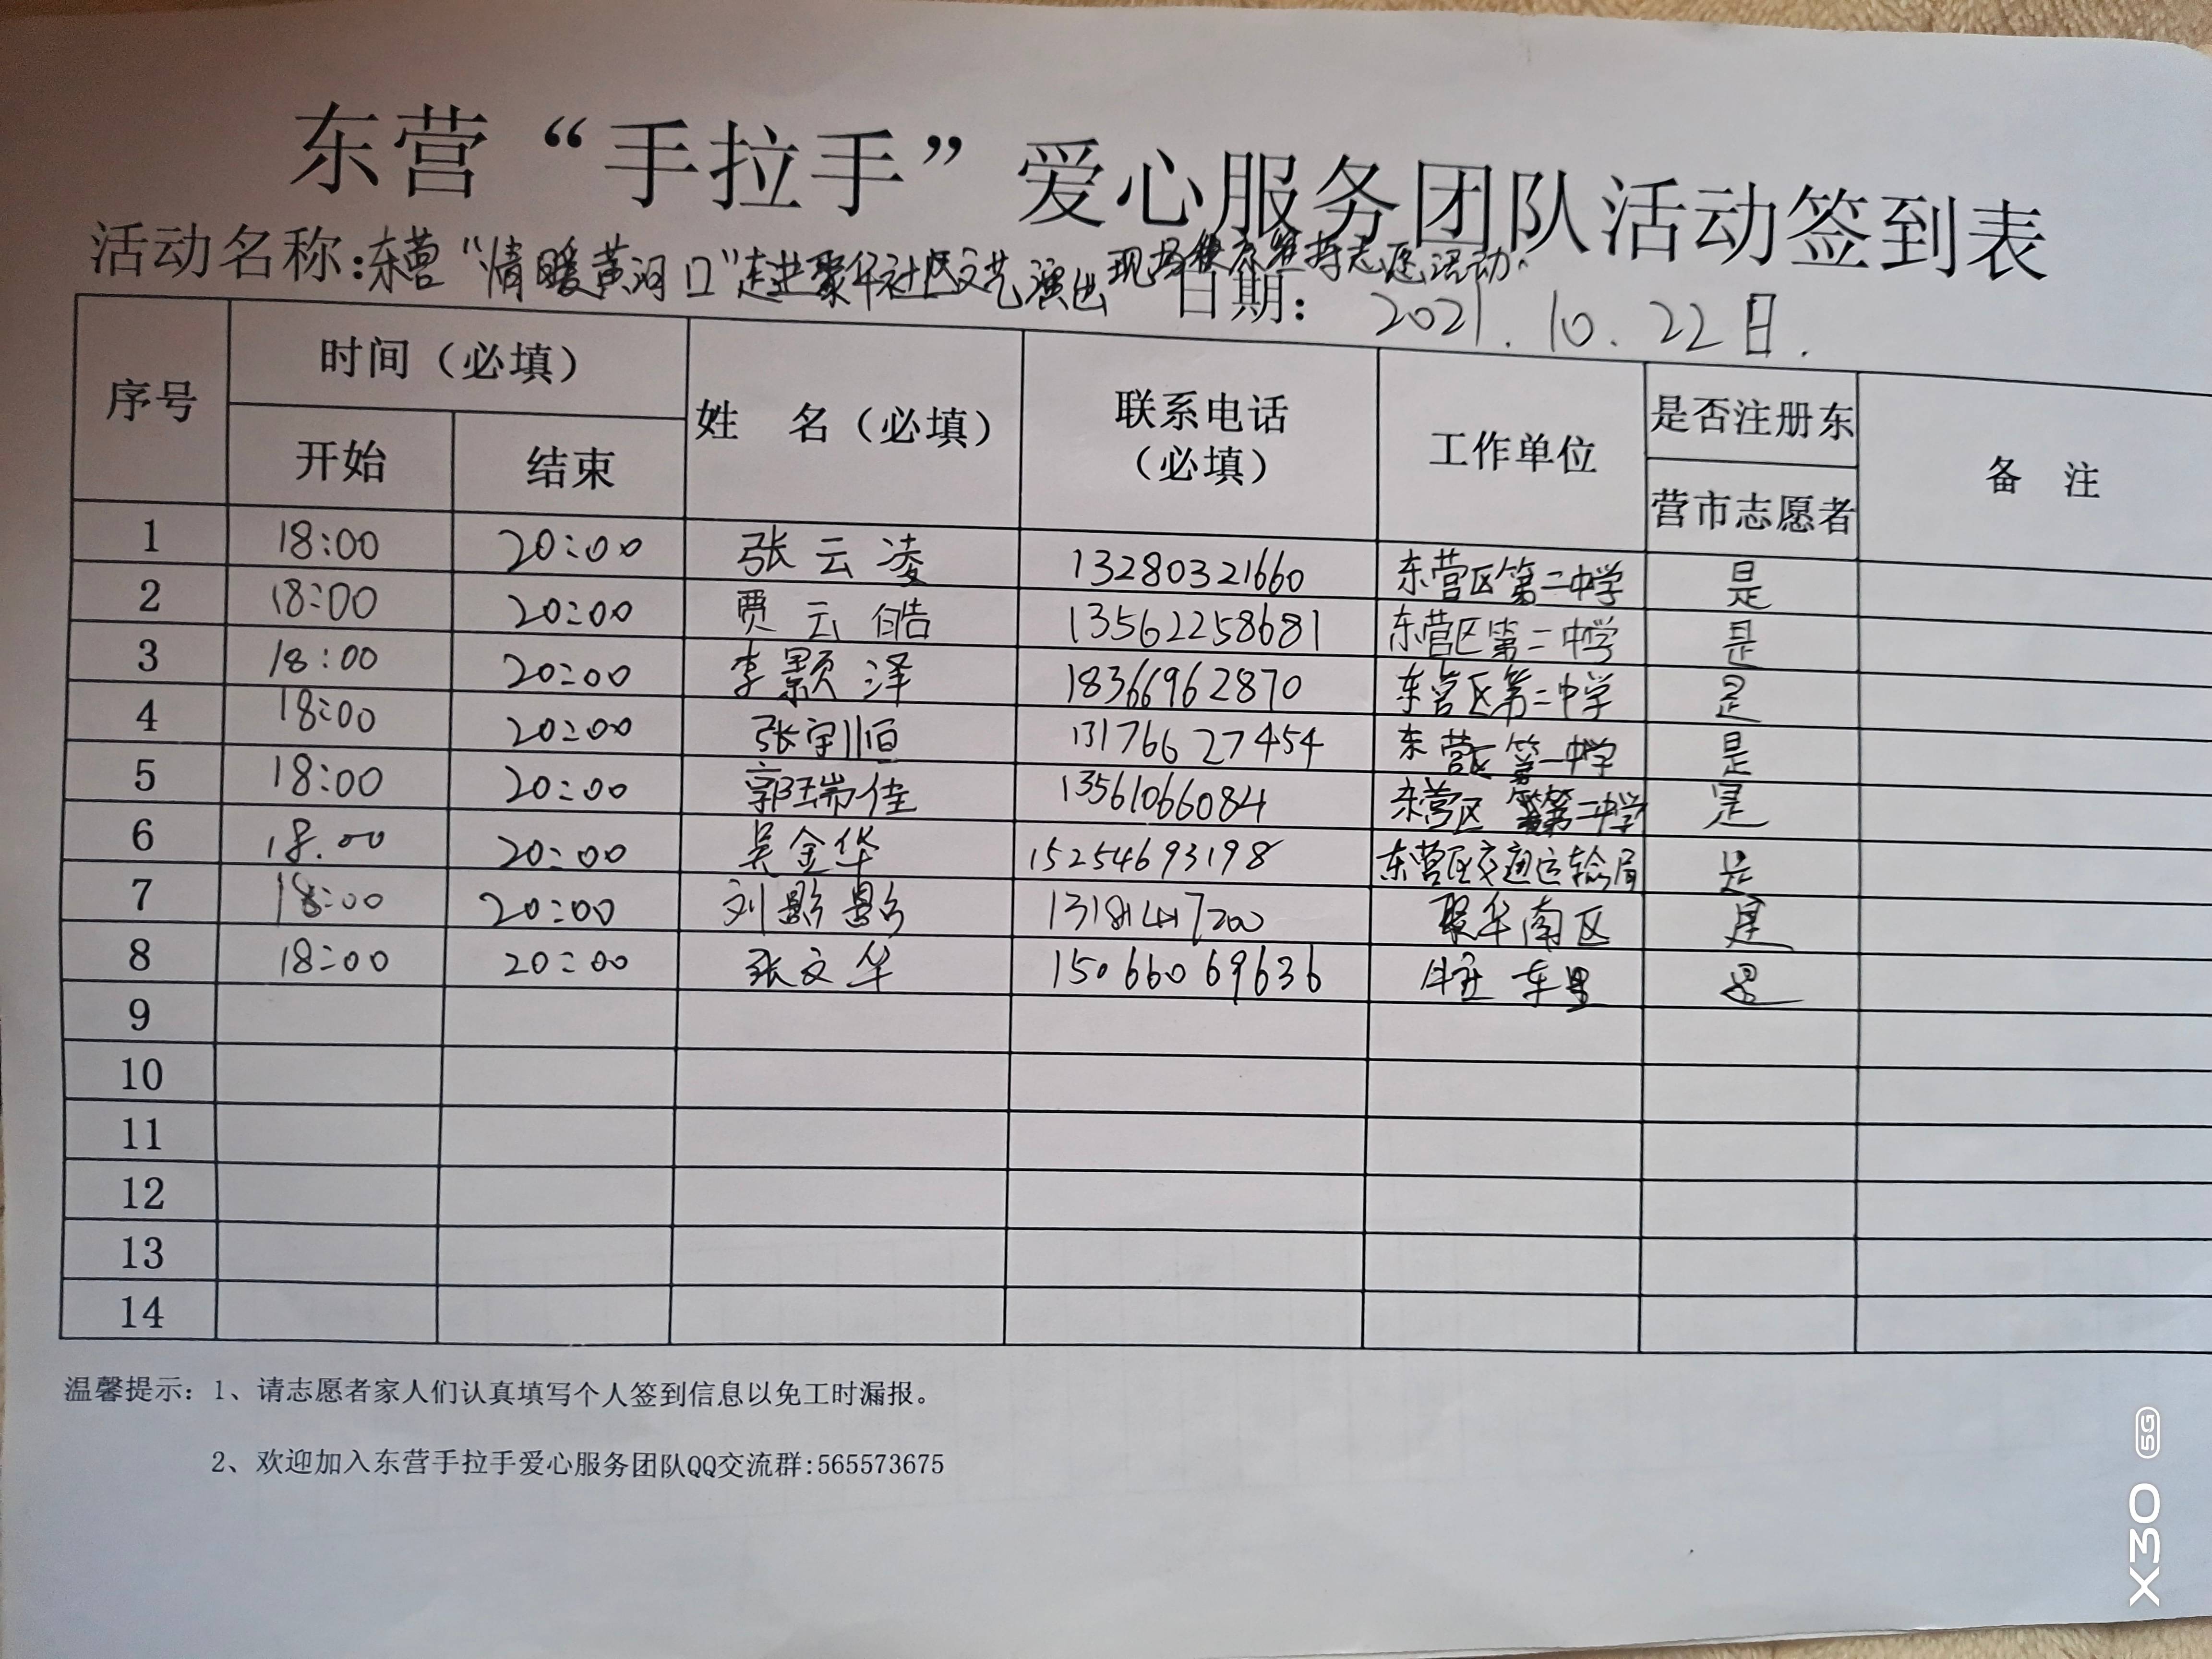 东营“手拉手”爱心服务团队活动签到表
活动名称:东营“情暖黄河口”走进聚华社区文艺演出现场秩序维持志愿活动
日期: 2021.10.22日.
序号 时间（必填） 姓 名（必填） 联系电话（必填） 工作单位 是否注册东营市志愿者 备 注
开始 结束
1 18:00 20:00 张云凌 13280321660 东营区第二中学 是
2 18:00 20:00 贾云皓 13562258681 东营区第二中学 是
3 18:00 20:00 李颢泽 18366962870 东营区第二中学 是
4 18:00 20:00 张宇恒 13176627454 东营区第一中学 是
5 18:00 20:00 郭瑞佳 13561066084 东营区第二中学 是
6 18.00 20:00 吴金华 15254693198 东营区交通运输局 是
7 18:00 20:00 刘影影 聚华南区 是
8 18:00 20:00 张文华 15066069636 是
9
10
11
12
13
14
温馨提示: 1、请志愿者家人们认真填写个人签到信息以免工时漏报。
2、欢迎加入东营手拉手爱心服务团队QQ交流群:565573675
X30 5G